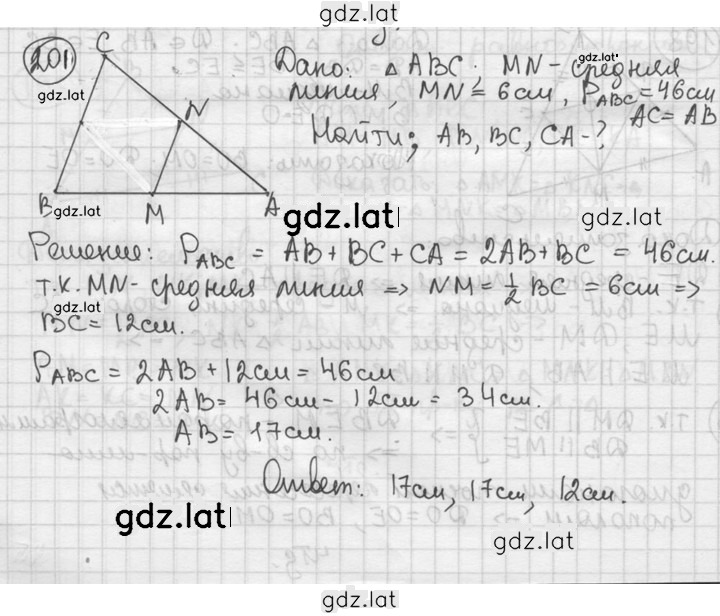 gdz.lat
201
C
gdz.lat
N
B
gdz.lat
M
A
Дано: △ ABC; MN - средняя
gdz.lat
линия, MN = 6см, P_ABC = 46см
AC = AB
Найти: AB, BC, CA - ?
gdz.lat
gdz.lat
Решение: P_ABC = AB + BC + CA = 2AB + BC = 46см.
т.к. MN - средняя линия => NM = 1/2 BC = 6см =>
gdz.lat
BC = 12см.
P_ABC = 2AB + 12см = 46см
2AB = 46см - 12см = 34см.
AB = 17см.
Ответ: 17см, 17см, 12см.
gdz.lat
gdz.lat
gdz.lat